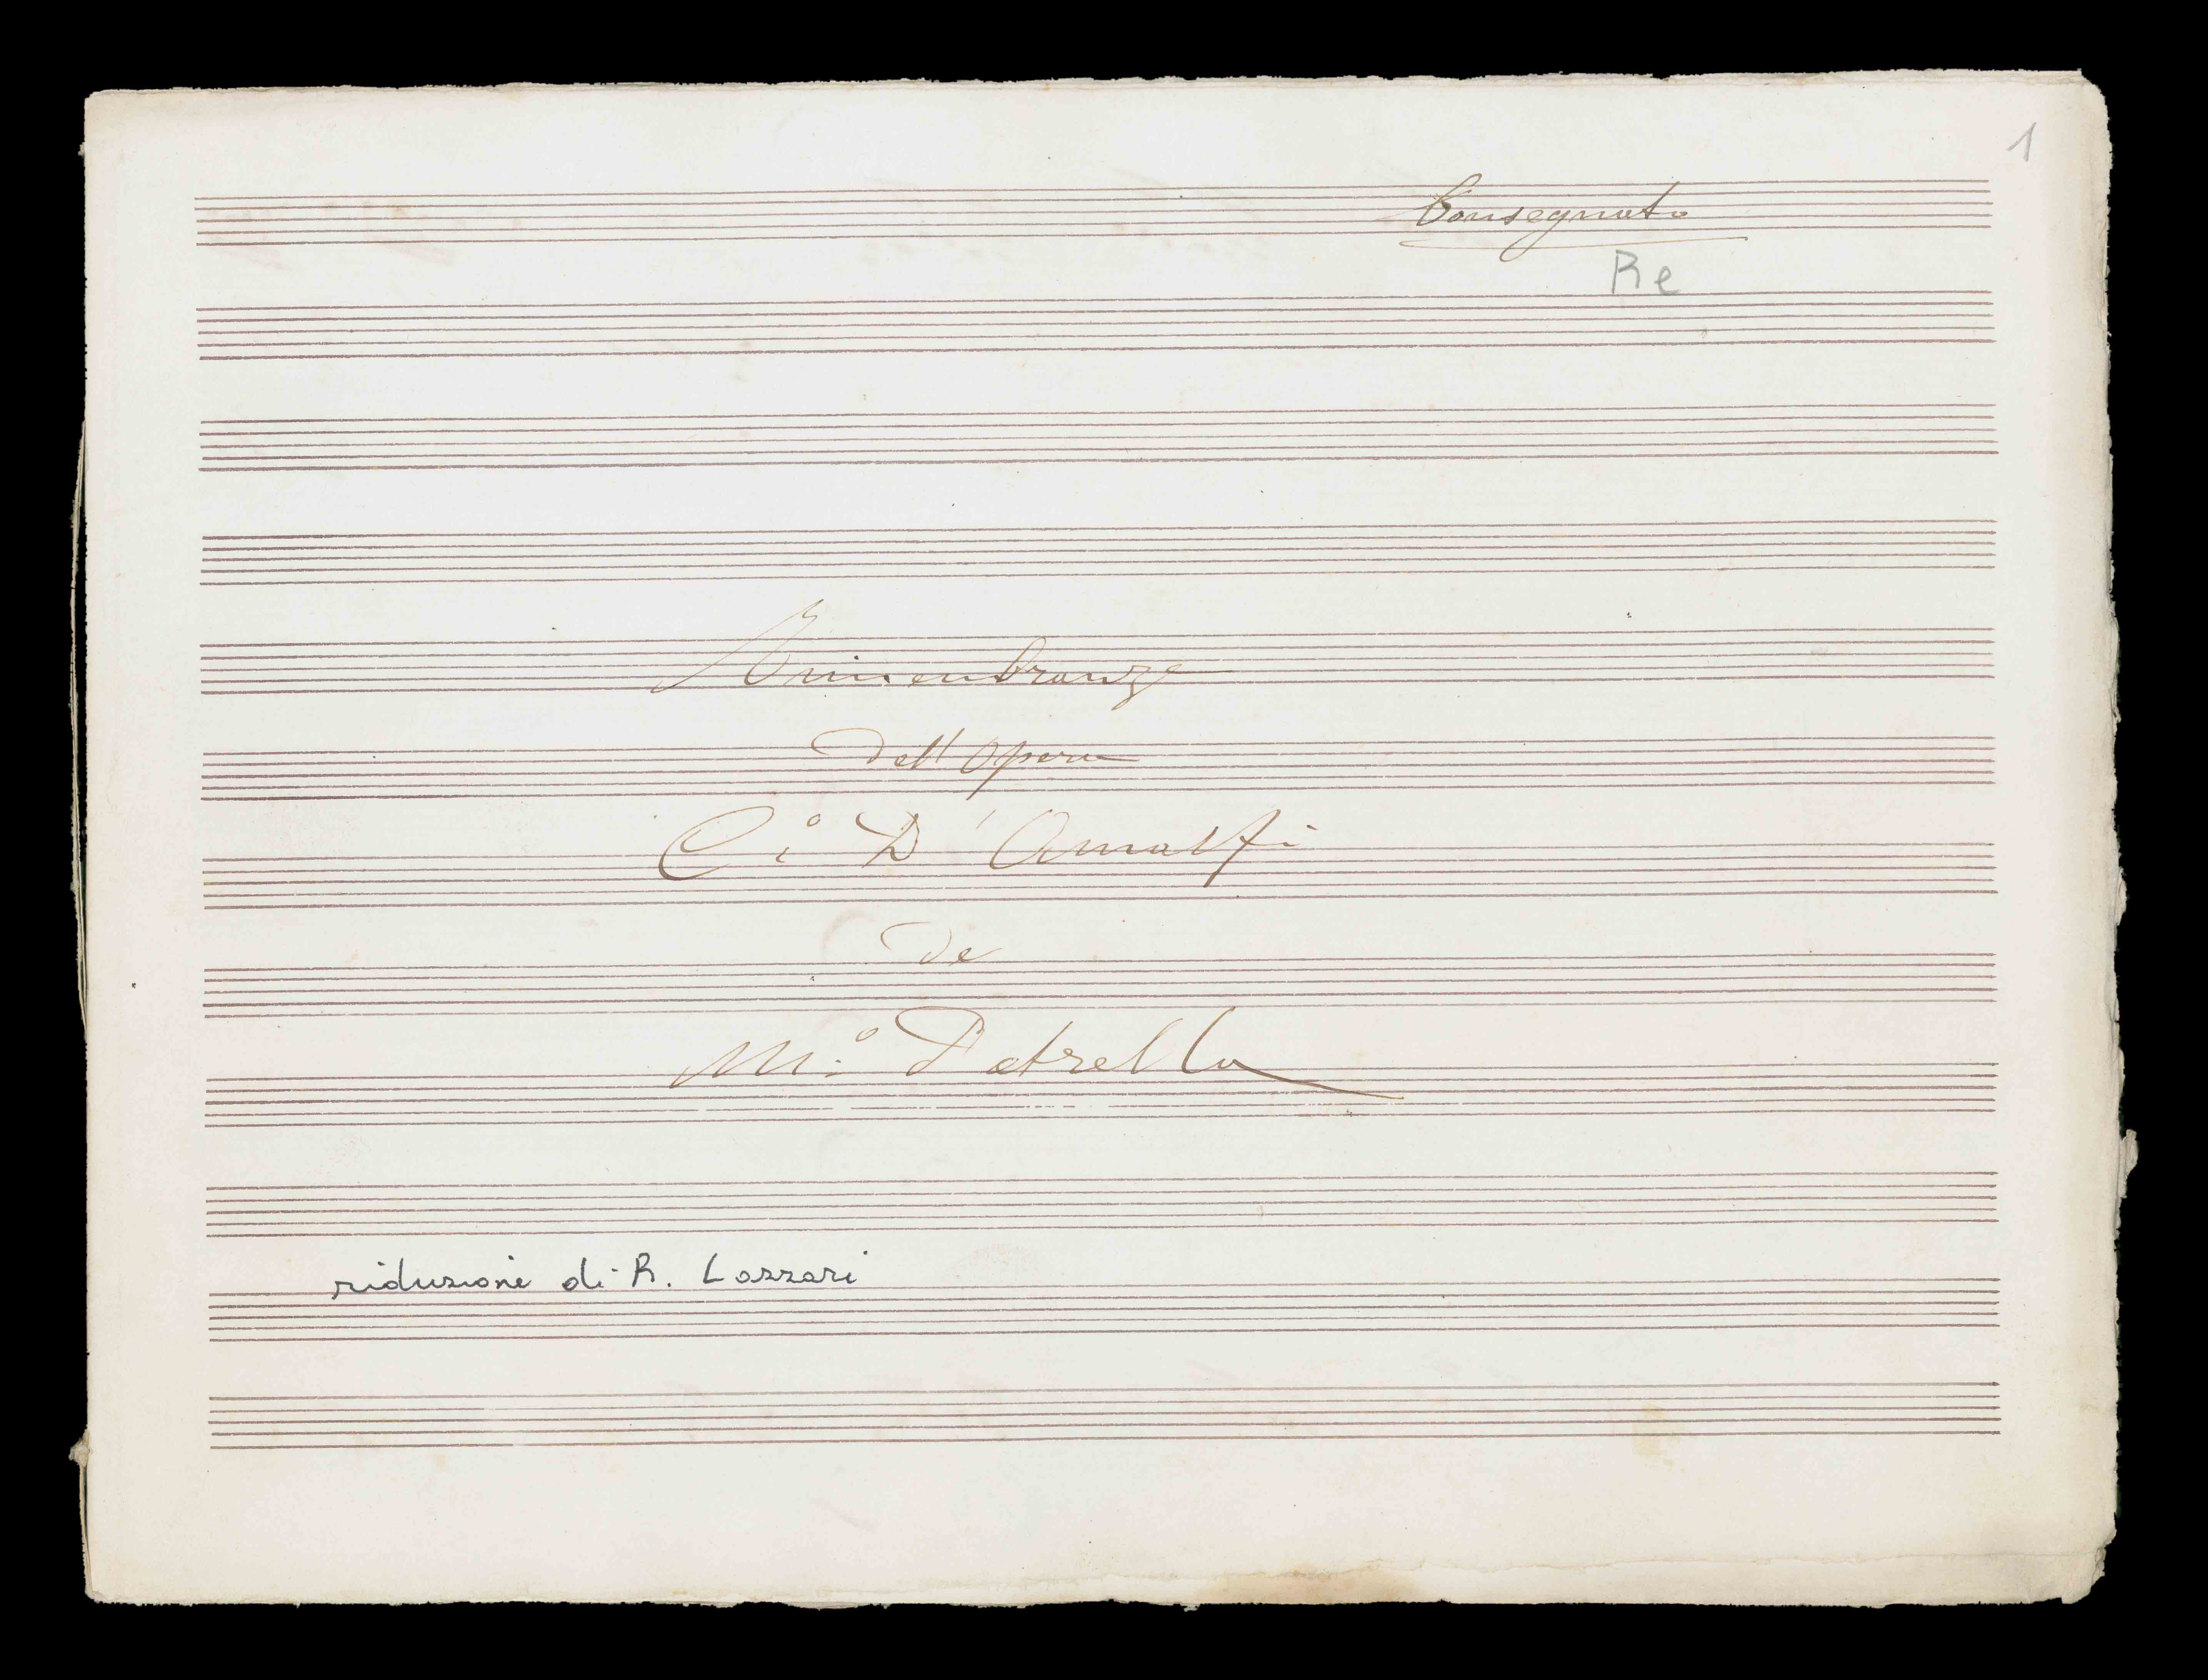 1
Consegnato
Re
Rimenbranze
dell'Opera
C.º D'Amalfi
de
M.º Petrella
riduzione di R. Lazzari